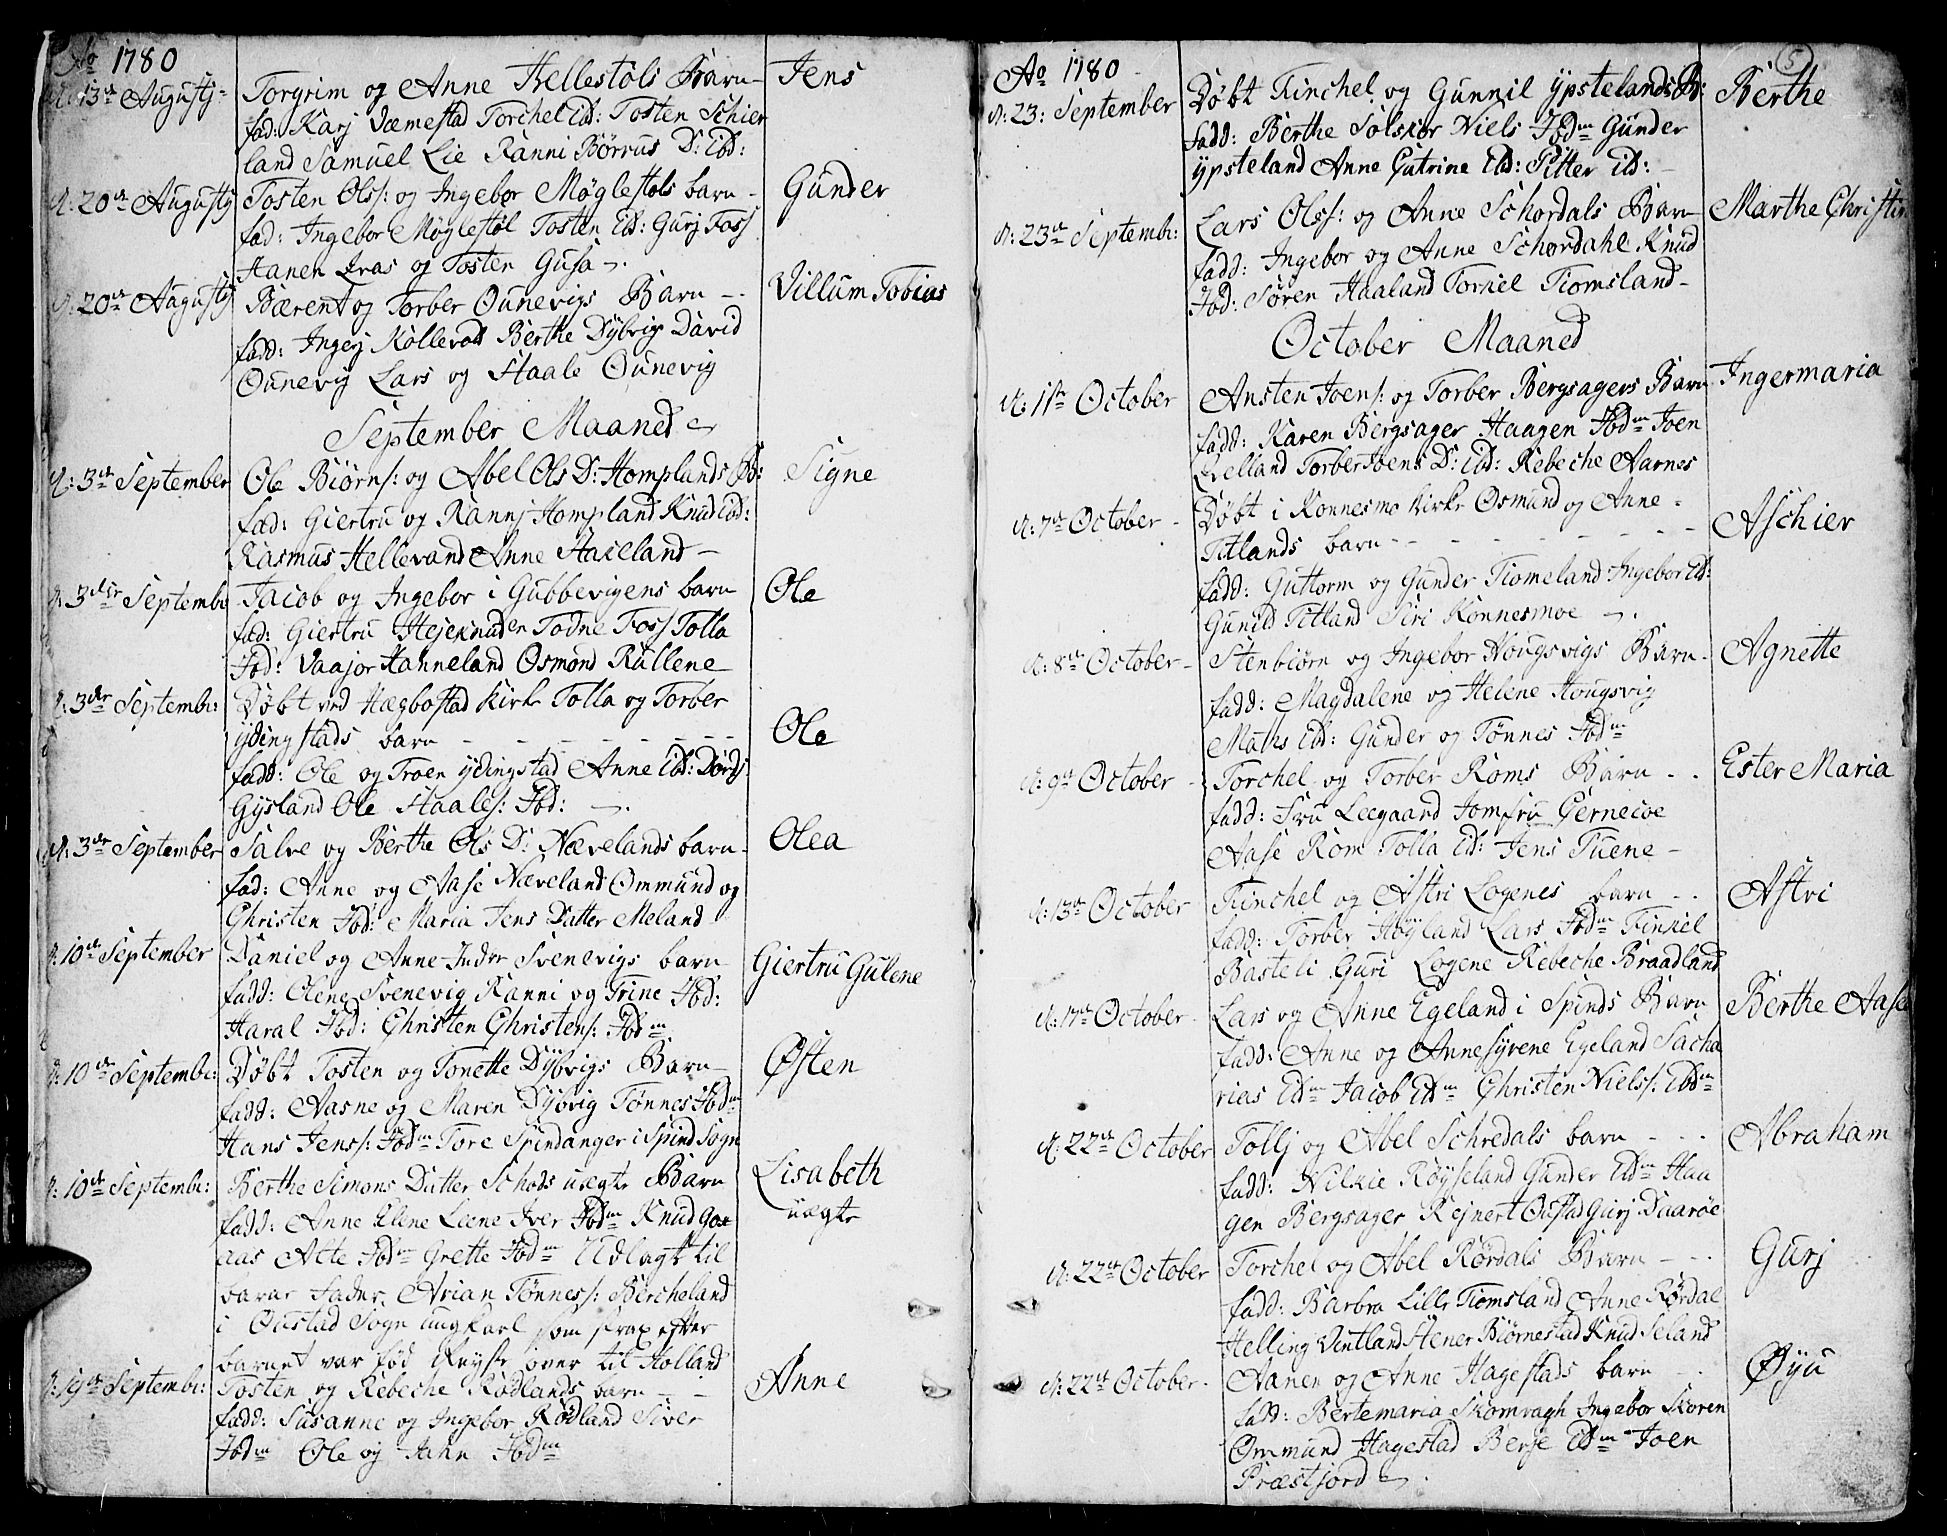 Ao 1780
d: 13de Augustj Torgrim og Anne Hellestøls Barn Jens
fad: Karj Vemestad Torchel ibd: Tosten Schier
land Samuel Lie Ranni Børrus D: ibd:
d: 20de Augustj Tosten Ols: og Ingebor Møglestøls barn Gunder
fad: Ingebor Møglestøl Tosten ibd: Gurj Foss
Hanen og Tosten Gusa
d: 20de Augustj Bærent og Torber Ounevigs Barn Villum Tobias
fadd: Ingerj Kollevold Berthe Dybvig David
Ounevig Lars og Staale Ounevig
September Maaned
d: 3de September Ole Biørns: og Abel Ols D: Homplands B: Signe
fad: Giertru og Rannj Hompland Knud ibd:
Rasmus Hellevand Anne Haaeland
d: 3die Septembr Jacob og Ingebor i Gubbevigens barn Ole
fad: Giertru Todne Foss Tolla
Ibd: Vaajor Hanneland Osmond Rullene
d: 3die Septembr: Døbt ved Hægbostad Kirke Tolla og Torber
ydingstads barn Ole
fadd: Ole og Troen ydingstad Anne ibd: Dordj
Gysland Ole Staales: Ibd:
d: 3die September Salve og Berthe Ols D: Nævelands barn Olea
fad: Anne og Aase Næveland Ommund og
Christen Ibd: Maria Jens Datter Meland
d: 10de September Daniel og Anne Svenevigs barn Giertru Gulene
fadd: Olene Svenevig Ranni og Trine Ibd:
Haral Ibd: Christen Christens: Ibdm
d: 10de Septembr: Døbt Tosten og Tonette Dybvigs Barn Østen
fadd: Aasne og Maren Dybvig Tønnes Ibdm
Hans Jens: Ibdm Tore Spindanger i Spind Sogn
d: 10de Septembr: Berthe Simons Datter Schods uægte Barn Lisabeth
uægte
fadd: Anne Elene Leene Iver Ibdm Knud Goe
aas Atte Ibdm Grette Ibdm Udlagt til
barne fader Arian Tønnes: Bercheland
i Oustad Sogn ungkarl som strax efter
barnet var fød Reyste over til Holland
d: 19de Septembr: Tosten og Rebeche Rødlands barn Anne
fadd: Susanne og Ingebor Rødland Siver
Ibdm Ole og Jahn Ibdm
5
Ao 1780
d: 23: September Døbt Tinchel og Gunnil ypstelands B: Berthe
fadd: Berthe Solskor Niels Ibdm Gunder
ypsteland Anne Cutrine ibd: Pitter ibd:
d: 23de Septembr: Lars Ols: og Anne Schordals Barn Marthe Christin
fadd: Ingebor og Anne Schordahl Knud
Ibd: Søren Haaland Torkel Tiomsland
October Maaned
d: 1ste October Ansten Joens: og Torber Bergsagers Barn Ingermaria
fadd: Karen Bergsager Haagen Ibdm Joen
Qvelland Torber Joens D: ibd: Rebeche Aarnes
d: 7de October Døbt i Konnesmo Kirke Osmund og Anne
Titlands barn Aschier
fadd: Guttorm og Gunder Tiomeland Ingebor ibd:
Gunild Titland Siri Konnesmoe
d: 8de October Stenbiørn og Ingebor Hougsvigs Barn Agnette
fadd: Magdalene og Helene Hougsvig
Mahs ibd: Gunder og Tønnes Ibdm
d: 9de October Torchel og Torber Roms Barn Ester Maria
fadd: Fru Leegaard Jomfru Gernecoe
Aase Rom Tolla ibd: Jens Tuene
d: 13de October Tinchel og Astri Logenes barn Astri
fadd: Torber Høyland Lars Ibdm Finkel
Basteli Guri Logene Rebeche Braadland
d: 17de October Lars og Anne Egeland i Spinds Barn Berthe Aase
fadd: Anne og Annesyrene Egeland Sacha
rias ibdm Jacob ibdm Christen Niels: ibdm
d: 22de October Tollj og Abel Schredals barn Abraham
fadd: Nilkie Røyseland Gunder ibdm Haa
gen Bergsager Rejnert Oustad Gurj Daarøe
d: 22de October Torchel og Abel Rørdals Barn Gurj
fadd: Barbra Lille Tiomsland Anne Rørdal
Helling Vintland Stener Biørnestad Knud Seland
d: 22de October Aanen og Anne Hagestads barn Øyu
fadd: Bertemaria Skomragh Ingebor Skoren
Ommund Hagestad Berse ibdm Joen
Præstjord